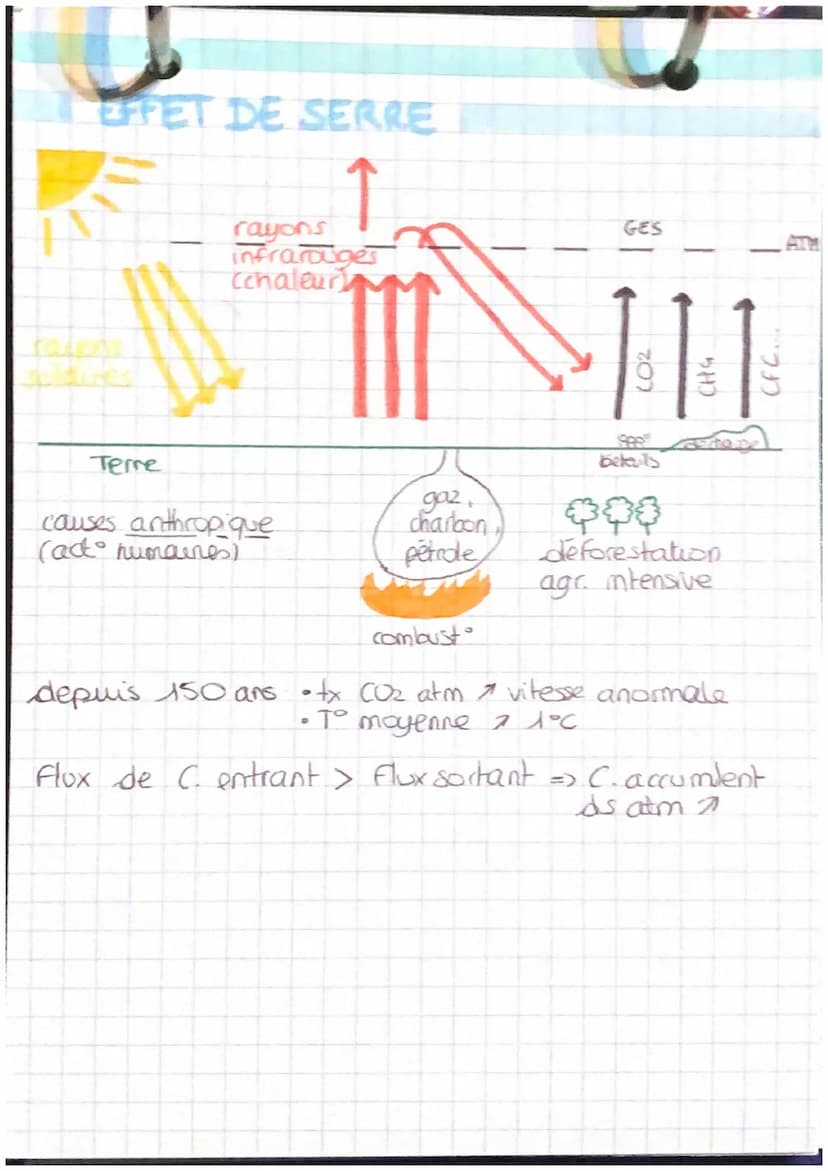 EFFET DE SERRE
rayons
infrarouges
(chaleur)
GES
ATM
rayons
solaires
CO2
CH4
CFC...
décharge
bétails
Terre
causes anthropique
(act° humaines)
gaz,
charbon,
pétrole
combust°
déforestation
agr. intensive
depuis 150 ans • tx CO2 atm ↗ vitesse anormale
• T° moyenne ↗ 1°C
Flux de C. entrant > Flux sortant => C. accumlent
ds atm ↗